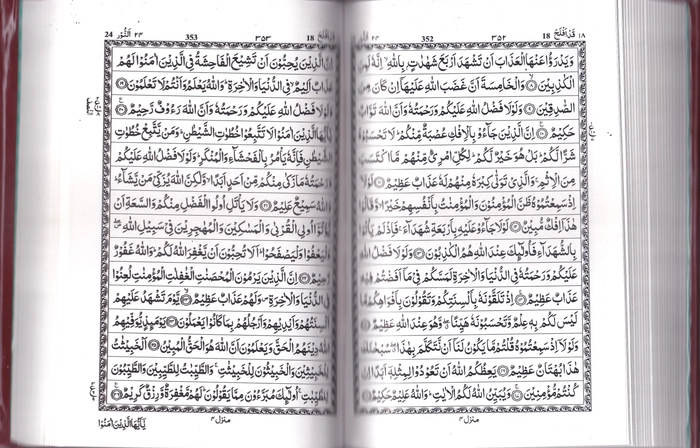 ١٨ قَدْ اَفْلَحَ 18 ٣٥٢ 352 اَلنُّوْر ٢٤
وَيَدْرَؤُا عَنْهَا الْعَذَابَ اَنْ تَشْهَدَ اَرْبَعَ شَهٰدٰتٍۭ بِاللّٰهِ ۙ اِنَّهٗ لَمِنَ
الْكٰذِبِيْنَ ۙ﴿٨﴾ وَالْخَامِسَةَ اَنَّ غَضَبَ اللّٰهِ عَلَيْهَاۤ اِنْ كَانَ مِنَ
الصّٰدِقِيْنَ ﴿٩﴾ وَلَوْلَا فَضْلُ اللّٰهِ عَلَيْكُمْ وَرَحْمَتُهٗ وَاَنَّ اللّٰهَ تَوَّابٌ
حَكِيْمٌ ﴿١٠﴾ اِنَّ الَّذِيْنَ جَآءُوْ بِالْاِفْكِ عُصْبَةٌ مِّنْكُمْ ؕ لَا تَحْسَبُوْهُ
شَرًّا لَّكُمْ ؕ بَلْ هُوَ خَيْرٌ لَّكُمْ ؕ لِكُلِّ امْرِئٍ مِّنْهُمْ مَّا اكْتَسَبَ
مِنَ الْاِثْمِ ۚ وَالَّذِيْ تَوَلّٰى كِبْرَهٗ مِنْهُمْ لَهٗ عَذَابٌ عَظِيْمٌ ﴿١١﴾ لَوْلَاۤ
اِذْ سَمِعْتُمُوْهُ ظَنَّ الْمُؤْمِنُوْنَ وَالْمُؤْمِنٰتُ بِاَنْفُسِهِمْ خَيْرًا ۙ وَّقَالُوْا
هٰذَاۤ اِفْكٌ مُّبِيْنٌ ﴿١٢﴾ لَوْلَا جَآءُوْ عَلَيْهِ بِاَرْبَعَةِ شُهَدَآءَ ۚ فَاِذْ لَمْ يَاْتُوْا
بِالشُّهَدَآءِ فَاُولٰٓئِكَ عِنْدَ اللّٰهِ هُمُ الْكٰذِبُوْنَ ﴿١٣﴾ وَلَوْلَا فَضْلُ اللّٰهِ
عَلَيْكُمْ وَرَحْمَتُهٗ فِي الدُّنْيَا وَالْاٰخِرَةِ لَمَسَّكُمْ فِيْ مَاۤ اَفَضْتُمْ فِيْهِ
عَذَابٌ عَظِيْمٌ ﴿١٤﴾ اِذْ تَلَقَّوْنَهٗ بِاَلْسِنَتِكُمْ وَتَقُوْلُوْنَ بِاَفْوَاهِكُمْ مَّا
لَيْسَ لَكُمْ بِهٖ عِلْمٌ وَّتَحْسَبُوْنَهٗ هَيِّنًا ۖ وَّهُوَ عِنْدَ اللّٰهِ عَظِيْمٌ ﴿١٥﴾
وَلَوْلَاۤ اِذْ سَمِعْتُمُوْهُ قُلْتُمْ مَّا يَكُوْنُ لَنَاۤ اَنْ نَّتَكَلَّمَ بِهٰذَا ۖ سُبْحٰنَكَ
هٰذَا بُهْتَانٌ عَظِيْمٌ ﴿١٦﴾ يَعِظُكُمُ اللّٰهُ اَنْ تَعُوْدُوْا لِمِثْلِهٖۤ اَبَدًا اِنْ
كُنْتُمْ مُّؤْمِنِيْنَ ﴿١٧﴾ وَيُبَيِّنُ اللّٰهُ لَكُمُ الْاٰيٰتِ ؕ وَاللّٰهُ عَلِيْمٌ حَكِيْمٌ ﴿١٨﴾
منزل ٤
18 ٣٥٣ 353 اَلنُّوْر ٢٤ 24
اِنَّ الَّذِيْنَ يُحِبُّوْنَ اَنْ تَشِيْعَ الْفَاحِشَةُ فِي الَّذِيْنَ اٰمَنُوْا لَهُمْ
عَذَابٌ اَلِيْمٌ ۙ فِي الدُّنْيَا وَالْاٰخِرَةِ ؕ وَاللّٰهُ يَعْلَمُ وَاَنْتُمْ لَا تَعْلَمُوْنَ ﴿١٩﴾
وَلَوْلَا فَضْلُ اللّٰهِ عَلَيْكُمْ وَرَحْمَتُهٗ وَاَنَّ اللّٰهَ رَءُوْفٌ رَّحِيْمٌ ﴿٢٠﴾
يٰۤاَيُّهَا الَّذِيْنَ اٰمَنُوْا لَا تَتَّبِعُوْا خُطُوٰتِ الشَّيْطٰنِ ؕ وَمَنْ يَّتَّبِعْ خُطُوٰتِ
الشَّيْطٰنِ فَاِنَّهٗ يَاْمُرُ بِالْفَحْشَآءِ وَالْمُنْكَرِ ؕ وَلَوْلَا فَضْلُ اللّٰهِ عَلَيْكُمْ
وَرَحْمَتُهٗ مَا زَكٰى مِنْكُمْ مِّنْ اَحَدٍ اَبَدًا ۙ وَّلٰكِنَّ اللّٰهَ يُزَكِّيْ مَنْ يَّشَآءُ ؕ
وَاللّٰهُ سَمِيْعٌ عَلِيْمٌ ﴿٢١﴾ وَلَا يَاْتَلِ اُولُوا الْفَضْلِ مِنْكُمْ وَالسَّعَةِ اَنْ
يُّؤْتُوْۤا اُولِي الْقُرْبٰى وَالْمَسٰكِيْنَ وَالْمُهٰجِرِيْنَ فِيْ سَبِيْلِ اللّٰهِ ۪ۖ
وَلْيَعْفُوْا وَلْيَصْفَحُوْا ؕ اَلَا تُحِبُّوْنَ اَنْ يَّغْفِرَ اللّٰهُ لَكُمْ ؕ وَاللّٰهُ غَفُوْرٌ
رَّحِيْمٌ ﴿٢٢﴾ اِنَّ الَّذِيْنَ يَرْمُوْنَ الْمُحْصَنٰتِ الْغٰفِلٰتِ الْمُؤْمِنٰتِ لُعِنُوْا
فِي الدُّنْيَا وَالْاٰخِرَةِ ۪ وَلَهُمْ عَذَابٌ عَظِيْمٌ ﴿٢٣﴾ يَّوْمَ تَشْهَدُ عَلَيْهِمْ
اَلْسِنَتُهُمْ وَاَيْدِيْهِمْ وَاَرْجُلُهُمْ بِمَا كَانُوْا يَعْمَلُوْنَ ﴿٢٤﴾ يَوْمَئِذٍ يُّوَفِّيْهِمُ
اللّٰهُ دِيْنَهُمُ الْحَقَّ وَيَعْلَمُوْنَ اَنَّ اللّٰهَ هُوَ الْحَقُّ الْمُبِيْنُ ﴿٢٥﴾ اَلْخَبِيْثٰتُ
لِلْخَبِيْثِيْنَ وَالْخَبِيْثُوْنَ لِلْخَبِيْثٰتِ ۚ وَالطَّيِّبٰتُ لِلطَّيِّبِيْنَ وَالطَّيِّبُوْنَ
لِلطَّيِّبٰتِ ۚ اُولٰٓئِكَ مُبَرَّءُوْنَ مِمَّا يَقُوْلُوْنَ ؕ لَهُمْ مَّغْفِرَةٌ وَّرِزْقٌ كَرِيْمٌ ﴿٢٦﴾
منزل ٤
يٰۤاَيُّهَا الَّذِيْنَ اٰمَنُوْا